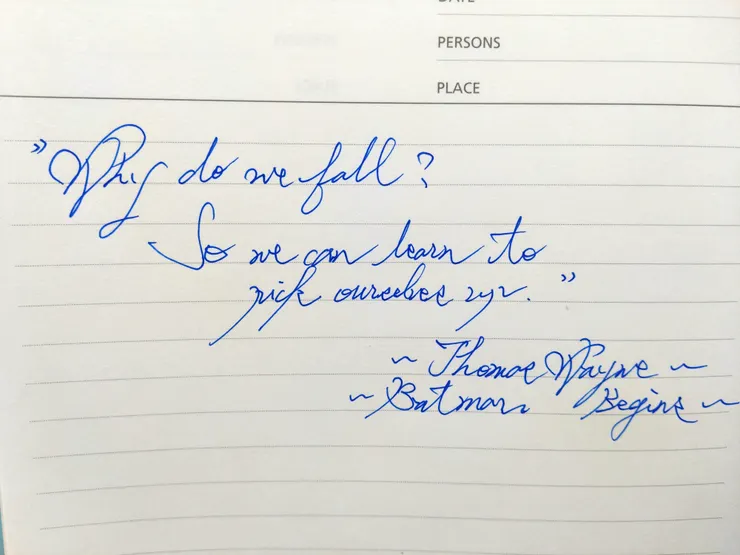 DATE
PERSONS
PLACE
"Why do we fall?
So we can learn to
pick ourselves up."
~ Thomas Wayne ~
~ Batman Begins ~